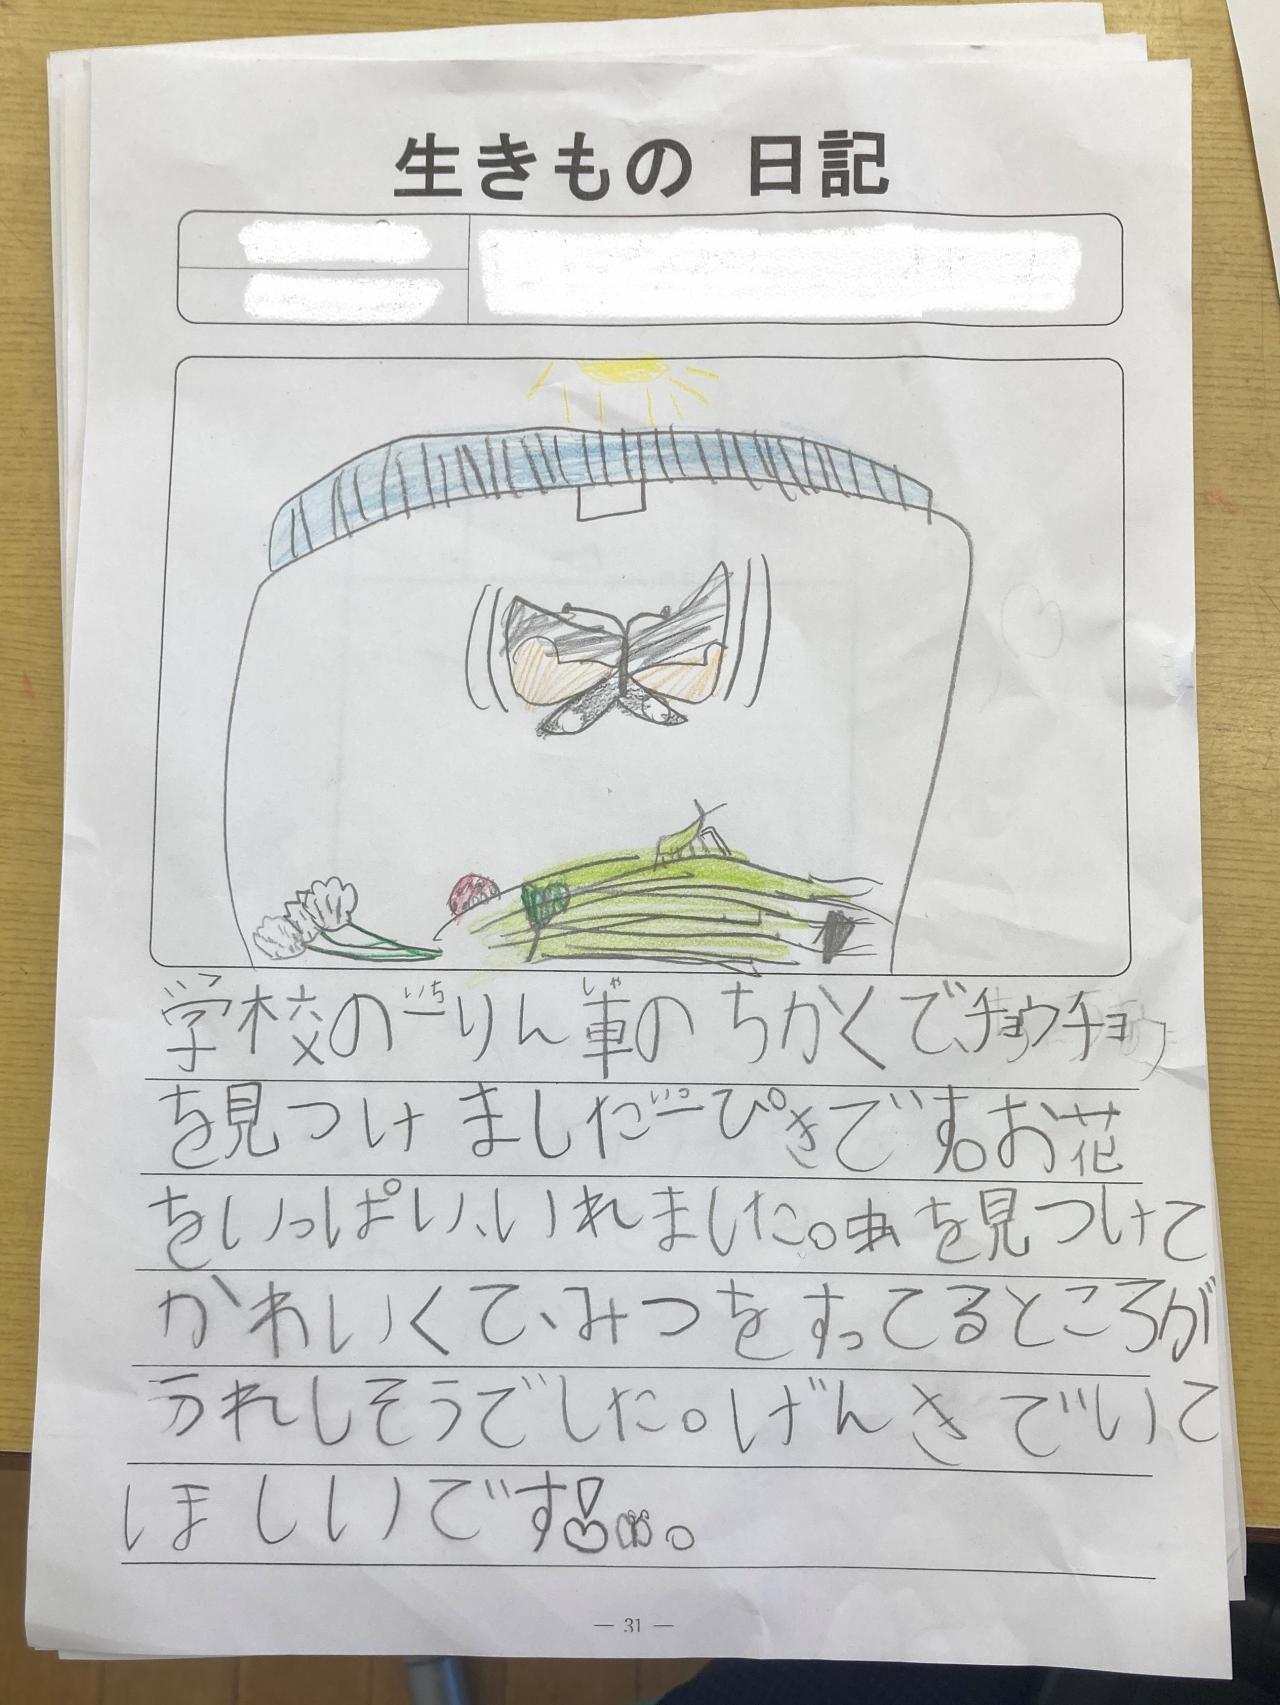 生きもの 日記
学校の一りん車のちかくで、チョウチョウ
を見つけました一ぴきです。お花
をいっぱい、いれました。虫を見つけて
かわいくて、みつをすってるところが
うれしそうでした。げんきでいて
ほしいです!。
— 31 —